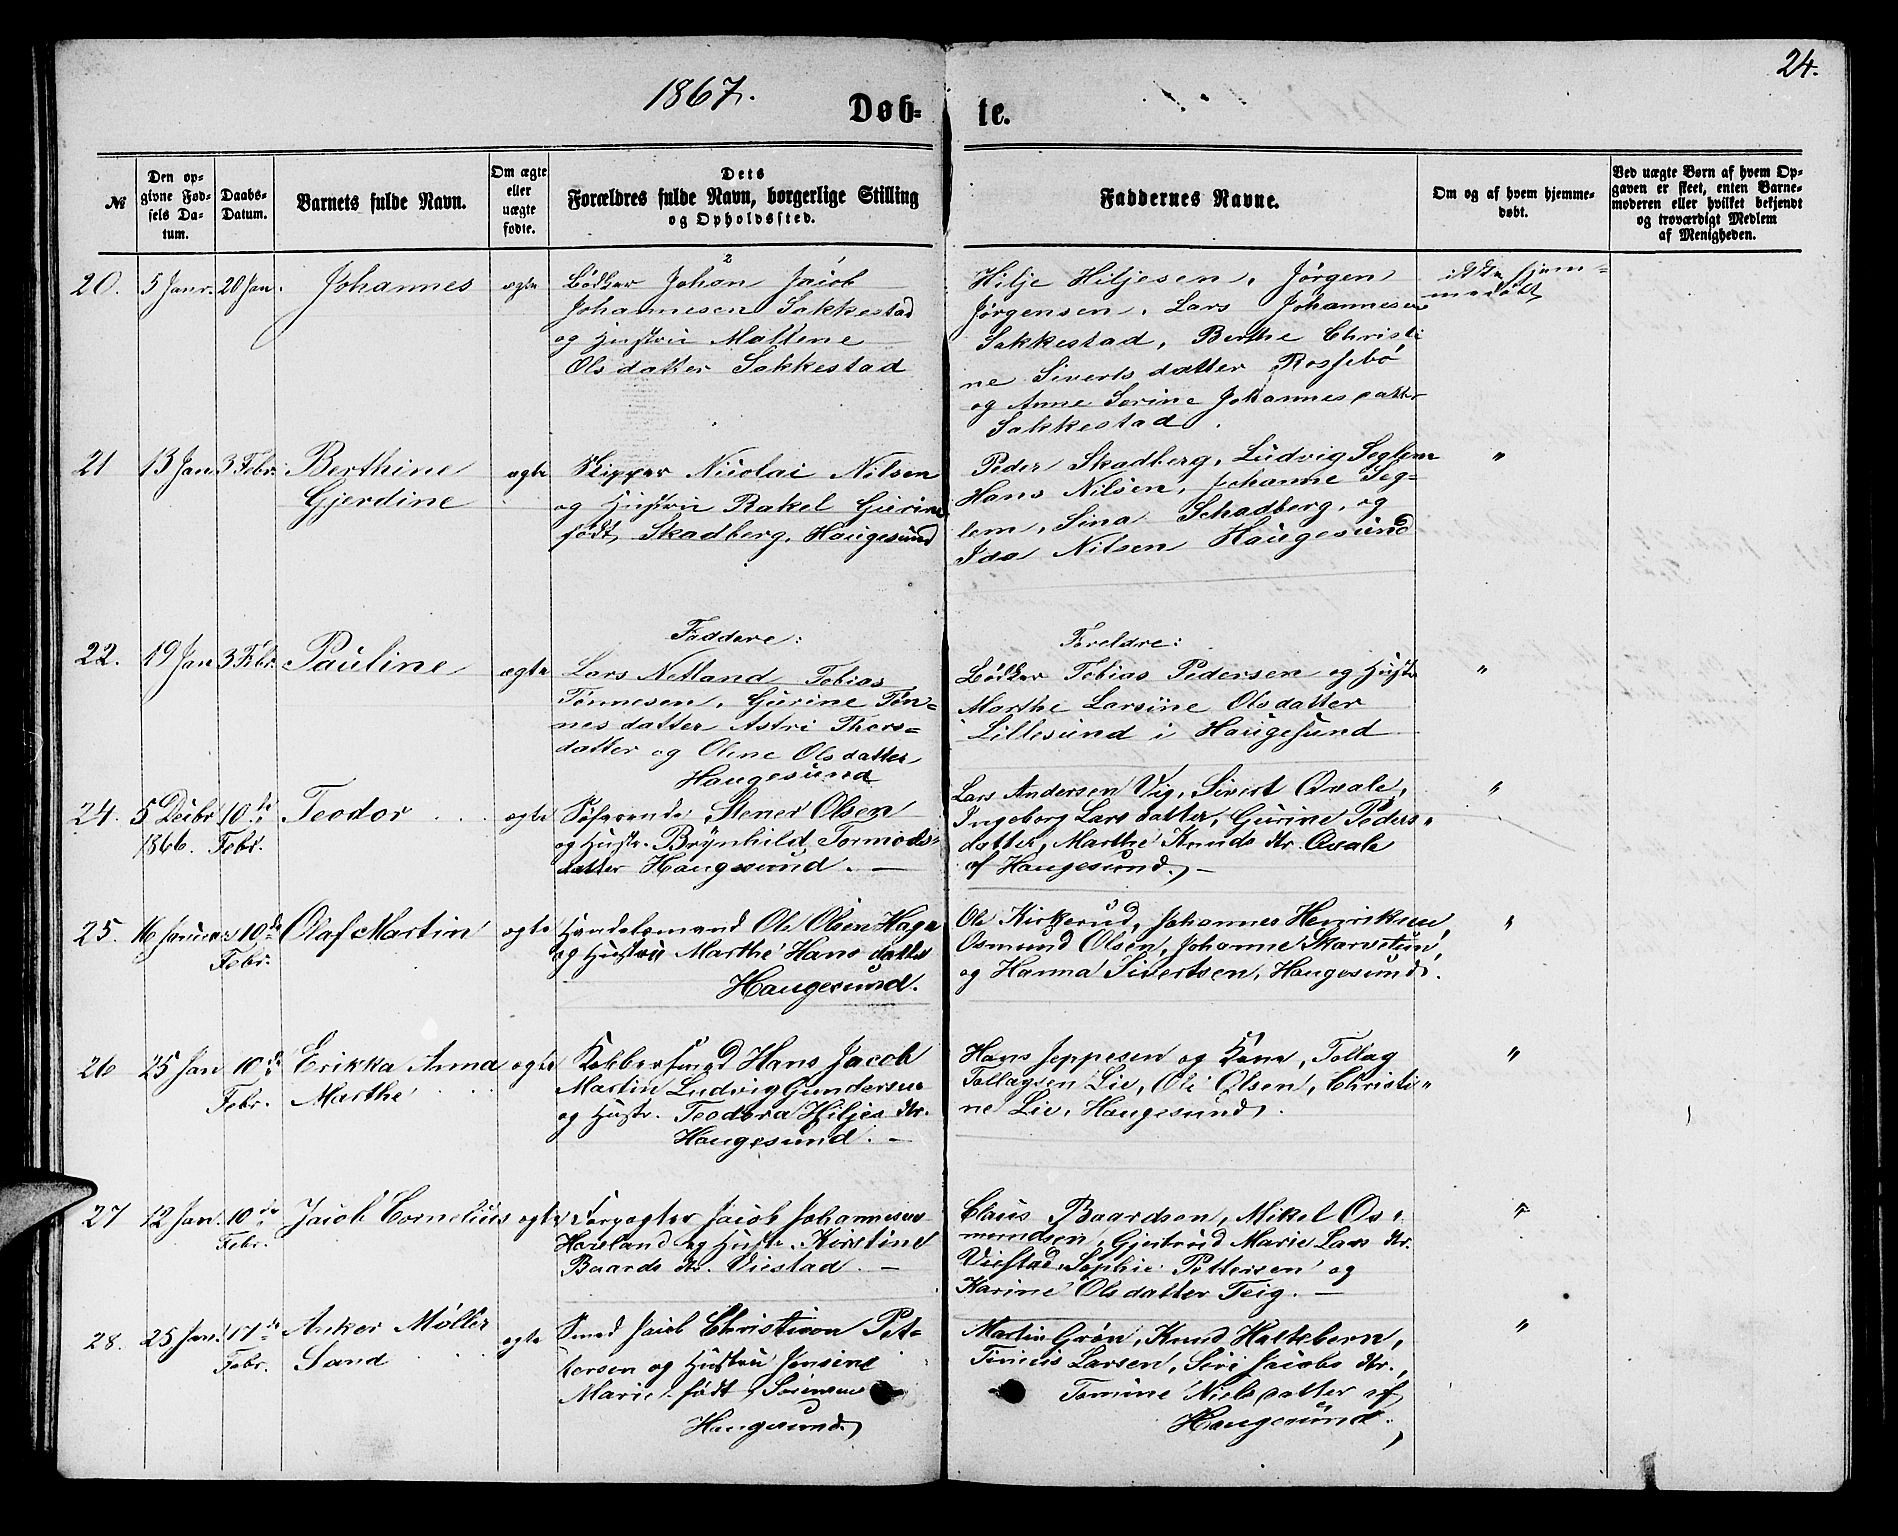 24.
1867.
Døb-
te.
№
Den op-
givne Fød-
sels Da-
tum.
Daabs-
Datum.
Barnets fulde Navn.
Om ægte
eller
uægte
fødte.
Dets
Forældres fulde Navn, borgerlige Stilling
og Opholdssted.
Faddernes Navne.
Om og af hvem hjemme-
døbt.
Ved uægte Børn af hvem Op-
gaven er skeet, enten Barne-
moderen eller hvilket bekjendt
og troværdigt Medlem
af Menigheden.
20.
5 Janr.
20 Jan.
Johannes
ægte
Bødker Johan Jacob
Johannesen Sakkestad
og Hustru Maltene
Olsdatter Sakkestad
Hilje Hiljesen, Jørgen
Jørgensen, Lars Johannesen
Sakkestad, Berthe Christi
ne Siverts datter Rossebø
og Anne Serine Johannesdatter
Sakkestad.
ikke hjem=
medøbt
21
13 Jan
3 Febr.
Berthine
Gjerdine
ægte
Skipper Nicolai Nilsen
og Hustru Rakel Gurine
født, Skadberg, Haugesund
Peder Skadberg, Ludvig Seglem
Hans Nilsen, Johanne Seg=
lem, Sina Schadberg, og
Ida Nilsen Haugesund
"
22.
19 Jan
3 Febr.
Pauline
ægte
Faddere:
Lars Netland Tobias
Tønnesen, Gurine Tøn=
nes datter Astri Thors=
datter og Olene Olsdatter
Haugesund
Foreldre:
Bødker Tobias Pedersen og Hustr.
Marthe Larsine Olsdatter
Lillesund i Haugesund
"
24.
5 Decbr
1866.
10de
Febr.
Teodor
ægte
Søfarende Stener Olsen
og Hustr. Brynhild Tormods-
datter Haugesund. —
Lars Andersen Vig, Sivert Qvale,
Ingeborg Lars datter, Gurine Peders-
datter, Marthe Knuds dtr. Qvale
af Haugesund. —
"
25.
16 Januar
10de
Febr.
Olaf Martin
ægte
Handelsmand Ole Olsen Hage
og Hustru Marthe Hans datter
Haugesund.
Ole Kirkerud, Johannes Henriksen,
Osmund Olsen, Johanne Skarstun,
og Hanna Sivertsen, Haugesund.
"
26
25 Jan
10de
Febr.
Erikka Anna
Marthe
ægte
Kobbersmed Hans Jacob
Martin Ludvig Gundersen
og Hustr. Teodora Hiljes dtr.
Haugesund. —
Hans Jeppesen og Kone, Tollag
Tollagsen Lie, Ole Olsen, Christi-
ne Lie, Haugesund.
"
27
12 Jan.
10de
Febr.
Jacob Cornelius
ægte
Forpagter Jacob Johannesen
Haveland og Hustr. Kirstine
Baards dtr. Viestad. —
Claus Baardsen, Mikel Os-
mundsen, Gjertrud Marie Lars dtr.
Viestad, Sophie Pettersen og
Karine Olsdatter Teig. —
"
28.
25 Jan.
17de
Febr.
Anker Møller
Sand
ægte
Smed Jacob Christian Pet-
tersen og Hustru Jensine
Marie født Sørensen
Haugesund
Martin Grøn, Knud Haltebern,
Tinius Larsen, Siri Jacobs dtr.,
Tomine Niels datter af
Haugesund.
"